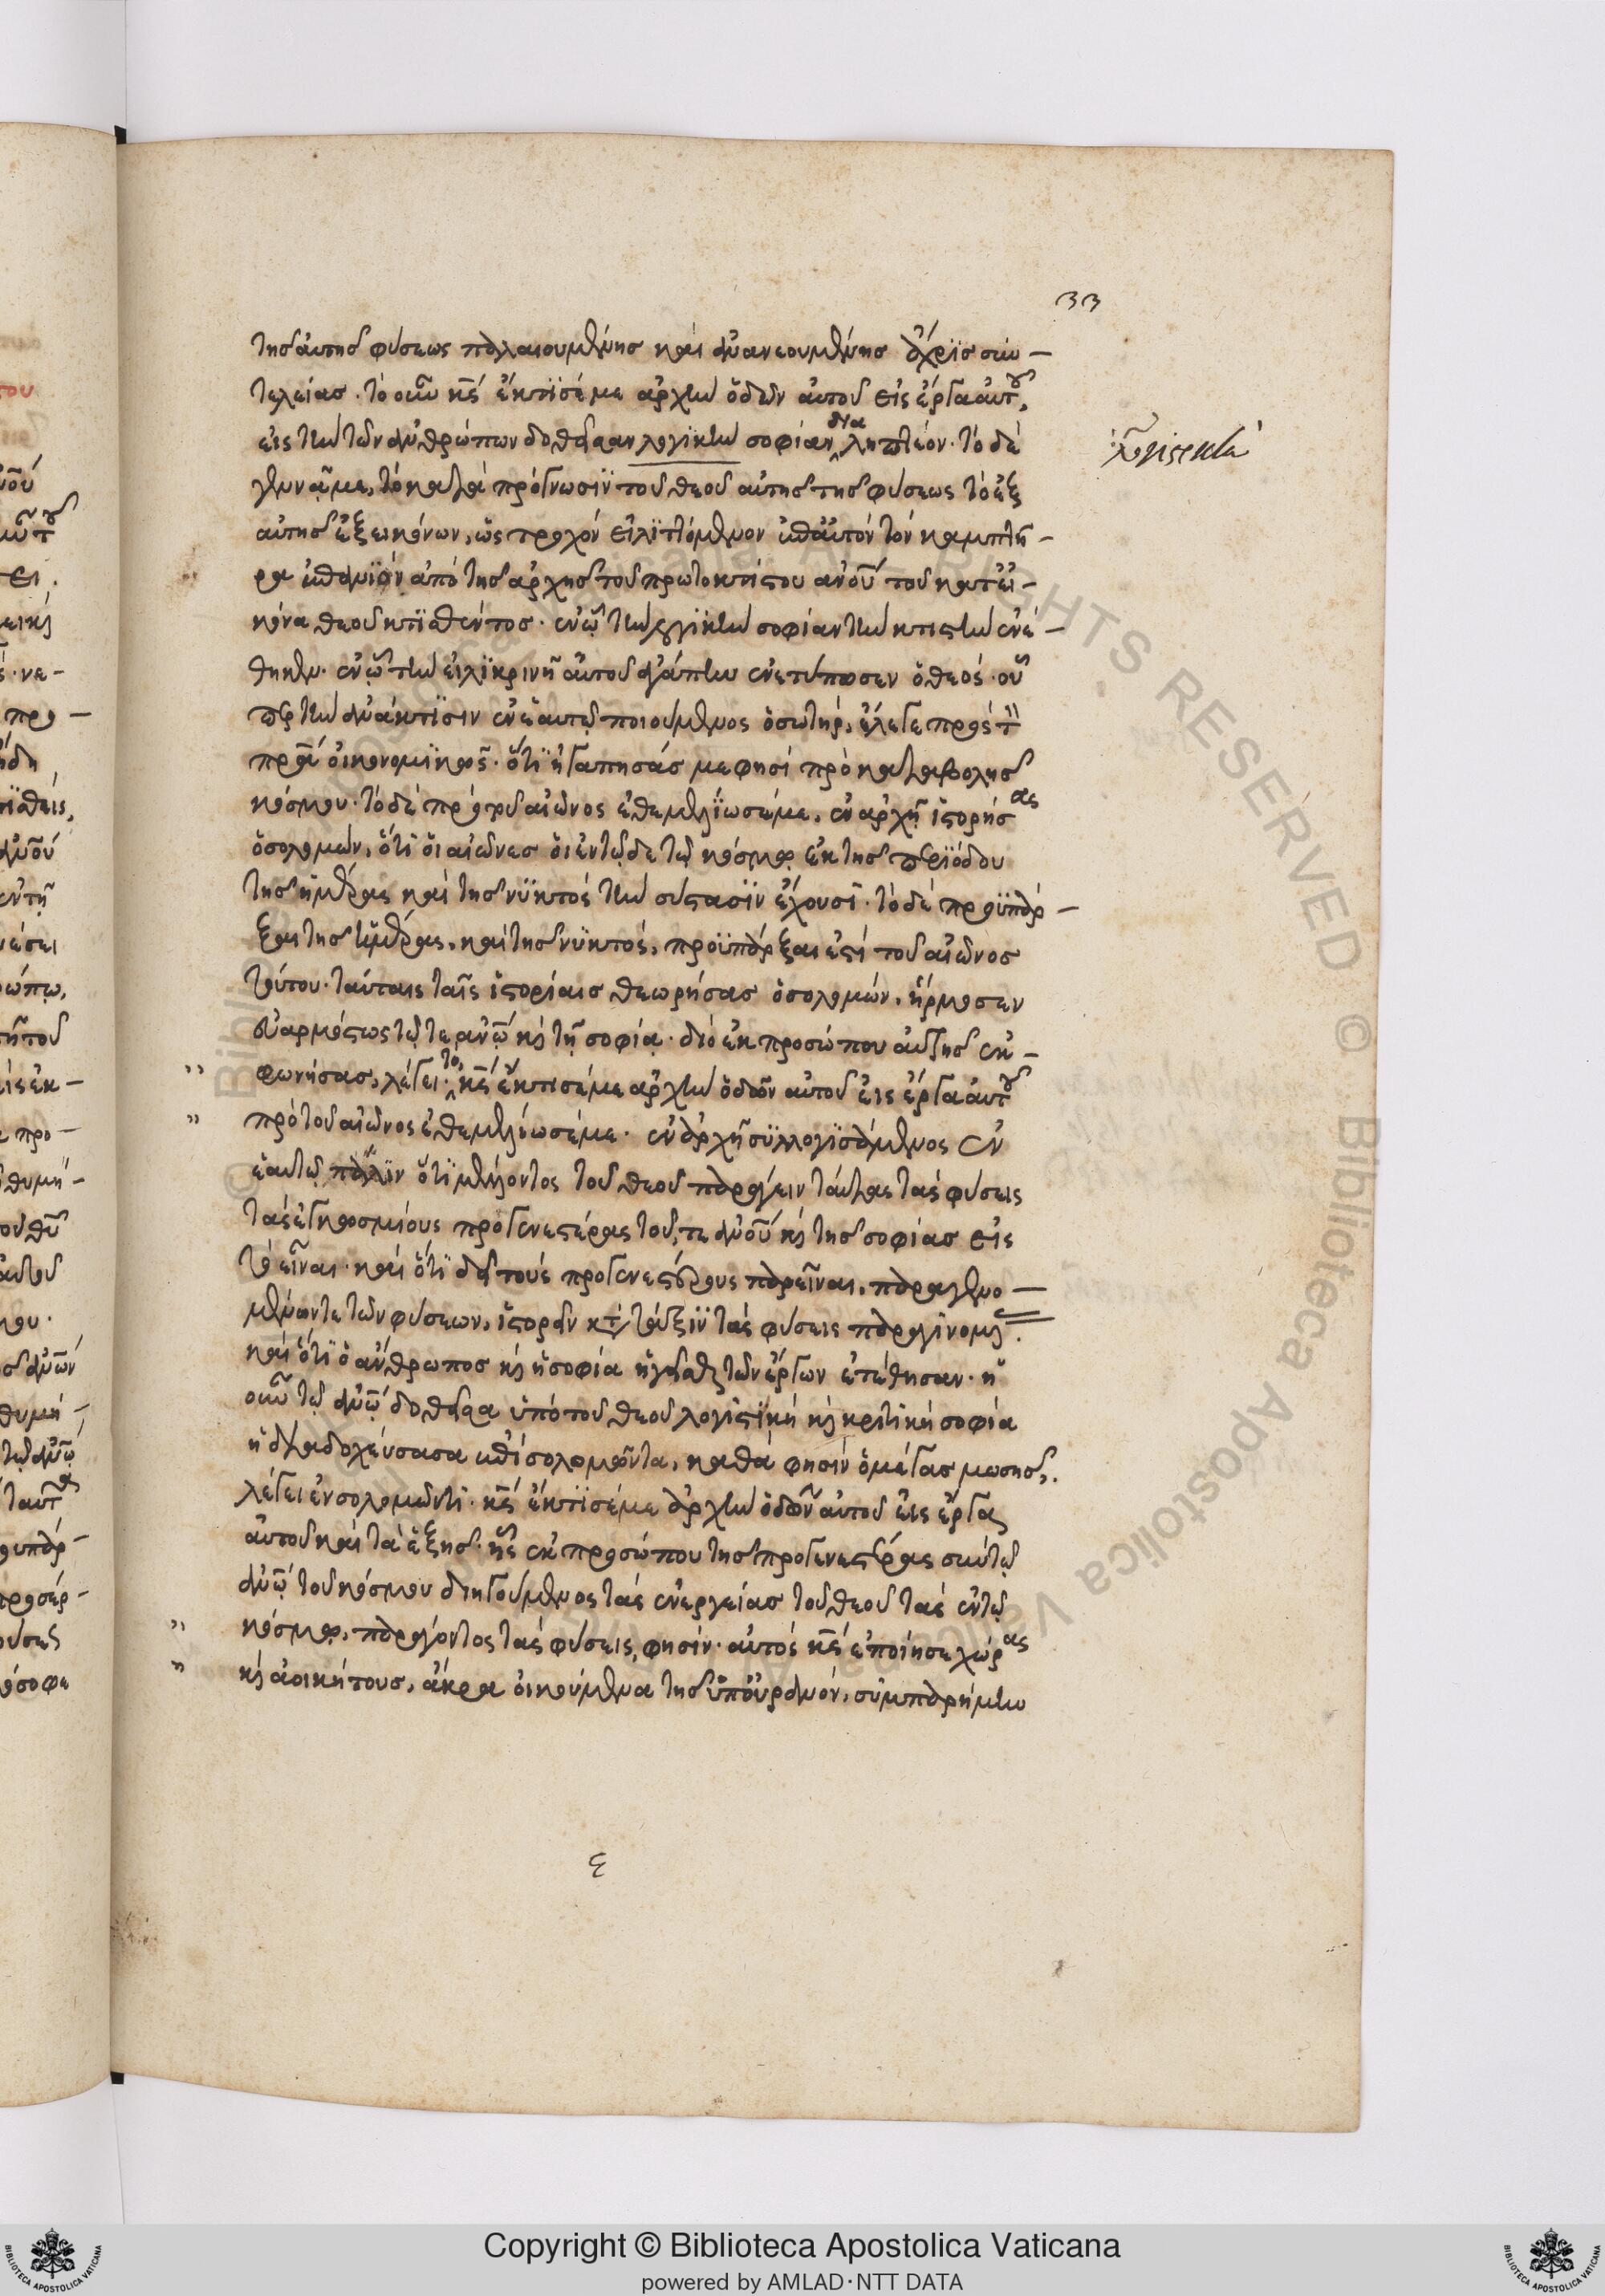 33
τῆς αὐτῆς φύσεως παλαιουμένης καὶ ἀνανεουμένης ἄχρϊς συν–
τελείας. τὸ οὖν κς ἔκτισέ με ἀρχὴν ὁδῶν αὐτοῦ εἰς ἔργα αὐτοῦ,
εἰς τὴν τῶν ἀνθρώπων δοθεῖσαν λογϊκὴν σοφίαν διαληπτέον. τὸ δὲ
λογιστικὴ
γεννᾷ με, τὸ κατὰ πρόγνωσϊν τοῦ θεοῦ αὐτῆς τῆς φύσεως τὸ ἐξ
αὐτῆς ἐξ εικόνων, ὡς τροχὸν εἱλϊττόμενον καθ' αυτὸν τὸν καμπτῆ–
ρα ἀπὸ τῆς ἀρχῆς τοῦ πρωτοκτίστου ανου τοῦ κατ' εἰ–
κόνα θεοῦ κτϊθέντος. ἐν ᾧ τὴν λογϊκὴν σοφίαν τὴν κτιστὴν ἐνέ–
θηκεν. ἐν ᾧ τὴν εἰλϊκρινῆ αὐτοῦ ἀγάπην ἐνετύπωσεν ὁ θεός. οὗ
περ τὴν ἀνάκτϊσιν ἐν ἑαυτῷ ποιούμενος ὁ σωτὴρ, ἔλεγε πρὸς τὸν
πρα οἰκονομϊκῶς. ὅτϊ ἠγάπησάς με φησὶ πρὸ καταβολῆς
κόσμου. τὸ δὲ πρὸ τοῦ αἰῶνος ἐθεμελίωσέ με, ἐν ἀρχῇ ἱστορήσας
ὁ σολομὼν, ὅτϊ οἱ αἰῶνες οἱ ἐν τῷδε τῷ κόσμῳ ἐκ τῆς περϊόδου
τῆς ἡμέρας καὶ τῆς νϋκτὸς τὴν σύστασϊν ἔχουσϊ. τὸ δὲ προϋπάρ–
ξαι τῆς ἡμέρας, καὶ τῆς νϋκτὸς, προϋπάρξαι ἐστὶ τοῦ αἰῶνος
τούτου. ταύταις ταῖς ἱστορίαις θεωρήσας ὁ σολομὼν, ἥρμοσεν
εὐαρμόστως τῷ τε ανω κὶ τῇ σοφίᾳ. διὸ ἐκ προσώπου αὐτῆς ἐκ–
φωνήσας, λέγει. τὸ κς ἔκτισέ με ἀρχὴν ὁδῶν αὐτοῦ εἰς ἔργα αὐτοῦ
πρὸ τοῦ αἰῶνος ἐθεμελίωσέ με. ἐν ἀρχῇ συλλογϊσάμενος ἐν
ἑαυτῷ πάλϊν ὅτϊ μέλλοντος τοῦ θεοῦ παράγειν ταύτας τὰς φύσεις
τὰς ἐγκοσμίους προγενεστέρας τοῦ, τε ανου κὶ τῆς σοφίας εἰς
τὸ εἶναι. καὶ ὅτϊ δεῖ τοὺς προγενεστέρους παρεῖναι, παραγενο–
μένων τε τῶν φύσεων, ἱστορεῖν κατὰ τάξϊν τὰς φύσεις παραγϊνομέν.
καὶ ὅτϊ ὁ ἄνθρωπος κὶ ἡ σοφία ἡγεῖσθαι τῶν ἔργων ἐτέθησαν. ἡ
οὖν τῷ ανω δοθεῖσα ὑπὸ τοῦ θεοῦ λογϊστϊκὴ κὶ κριτϊκὴ σοφία
ἡ διαδοχεύσασα σολομῶντα, καθά φησιν ὁ μέγας μωσῆς,
λέγει ἐν σολομῶντϊ. κς ἔκτϊσέ με ἀρχὴν ὁδῶν αὐτοῦ εἰς ἔργα
αὐτοῦ καὶ τὰ ἑξῆς. ἧς ἐκ προσώπου τῆς προγενεστέρας σὺν τῷ
ανω τοῦ κόσμου διηγούμενος τὰς ἐνεργείας τοῦ θεοῦ τὰς ἐν τῷ
κόσμῳ, παράγοντος τὰς φύσεις, φησίν. αὐτὸς κς ἐποίησε χώρας
κὶ ἀοικήτους, ἄκρα οἰκούμενα τῆς ὑπ' οὐρανὸν, συμπαρήμην
ε